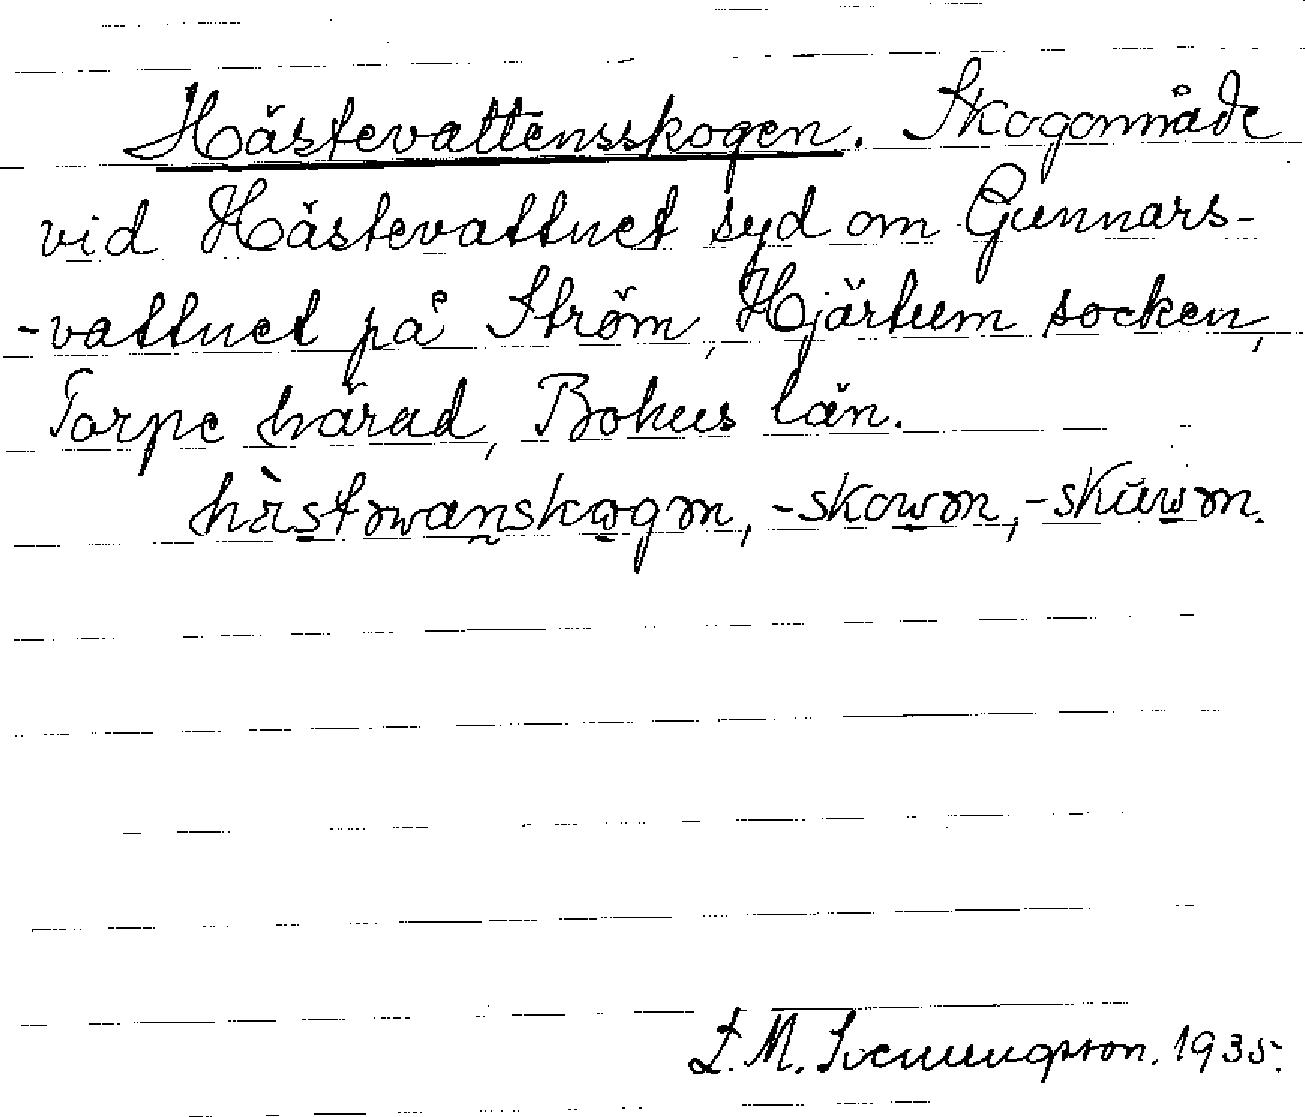 Hästevattensskogen. Skogområde
vid Hästevattnet syd om Gunnars-
-vattnet på Ström, Hjärtum socken,
Torpe härad, Bohus län.
L. M. Svenungsson. 1935.